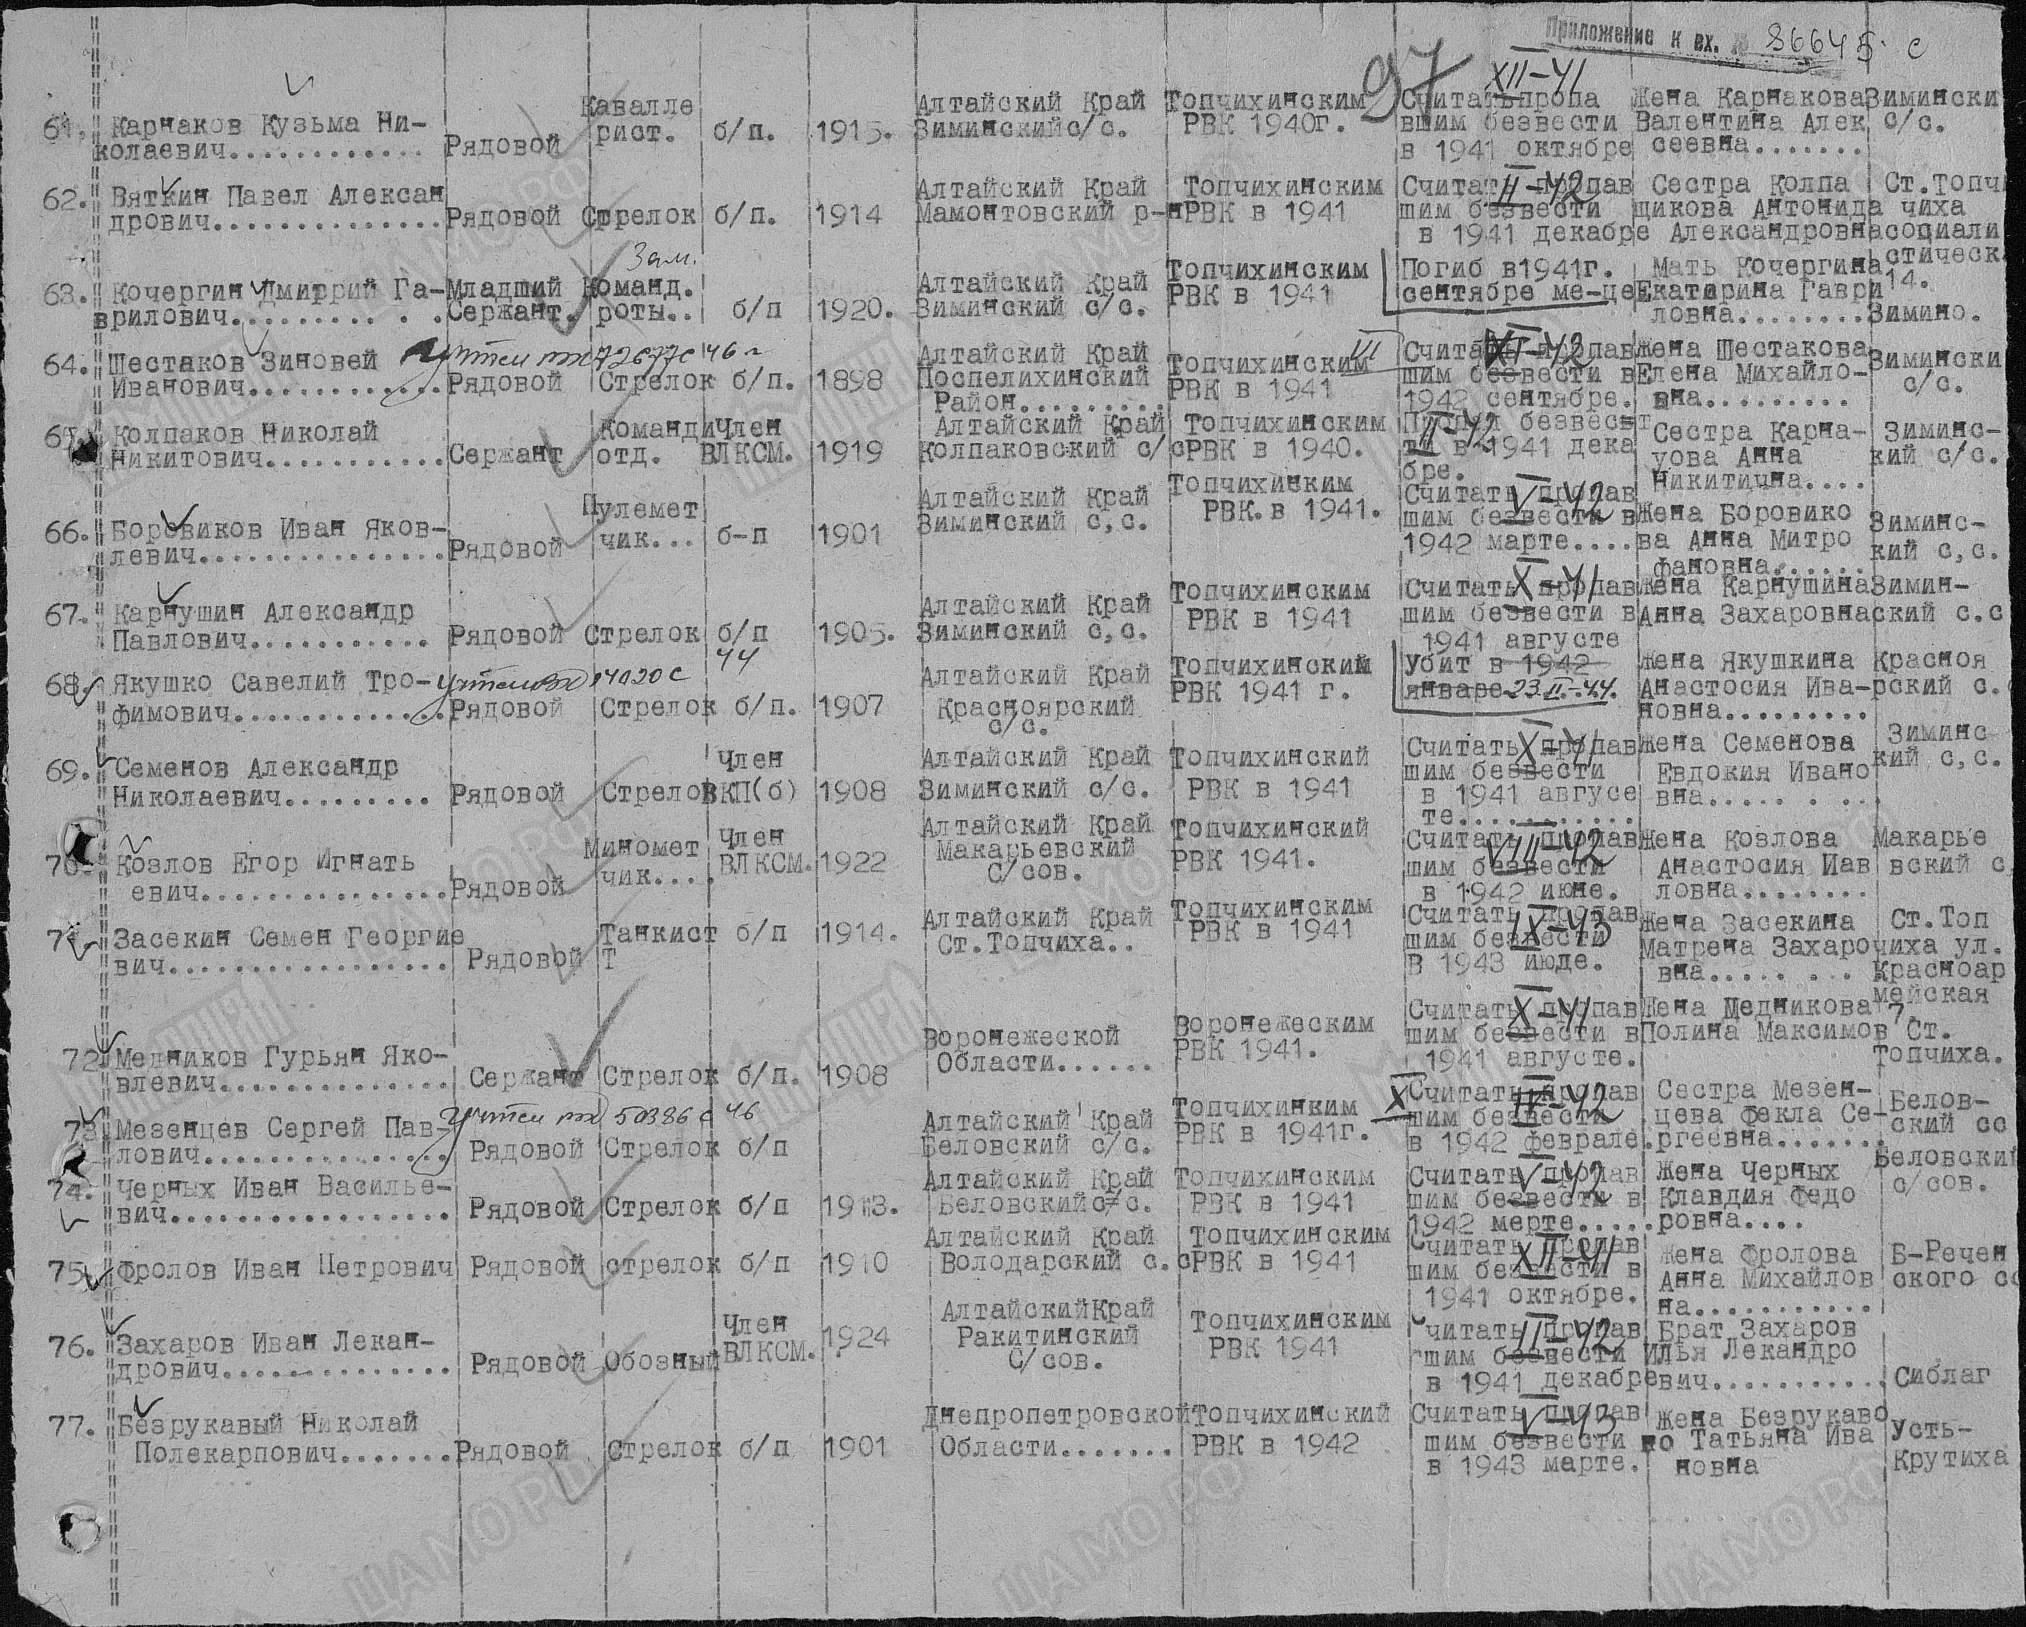 Приложение к вх. № 86645 с
97
61. Карнаков Кузьма Ни-
колаевич............ Рядовой Кавалле
рист. б/п. 1915. Алтайский Край
Зиминский с/с. Топчихинским
РВК 1940г. XII-41
Считать пропа
вшим безвести
в 1941 октябре Жена Карнакова
Валентина Алек
сеевна....... Зимински
с/с.
62. Вяткин Павел Алексан
дрович.............. Рядовой Стрелок б/п. 1914 Алтайский Край
Мамонтовский р-н Топчихинским
РВК в 1941 Считать пропав
II-42
шим безвести
в 1941 декабре Сестра Колпа
щикова Антонида
Александровна Ст.Топч
чиха
социали
стическ
14.
63. Кочергин Дмитрий Га-
врилович......... . . Младший
Сержант. Зам.
Команд.
роты.. б/п 1920. Алтайский Край
Зиминский с/с. Топчихинским
РВК в 1941 Погиб в1941г.
сентябре ме-це Мать Кочергина
Екатирина Гаври
ловна........ Зимино.
64. Шестаков Зиновей
Иванович............ учтен 72677с 46г
Рядовой Стрелок б/п. 1898 Алтайский Край
Поспелихинский
Район......... Топчихинским
РВК в 1941 III
Считать пропав
XI-42
шим безвести в
1942 сентябре. Жена Шестакова
Елена Михайло-
вна......... Зимински
с/с.
65. Колпаков Николай
Никитович........... Сержант Команди
отд. Член
ВЛКСМ. 1919 Алтайский Край
Колпаковский с/с Топчихинским
РВК в 1940. Пропал безвест
II-42
ви в 1941 дека
бре. Сестра Карна-
уова Анна
Никитична.... Зиминс-
кий с/с.
66. Боровиков Иван Яков-
левич............... Рядовой Пулемет
чик... б-п 1901 Алтайский Край
Зиминский с,с. Топчихинким
РВК.в 1941. Считать пропав
V-42
шим безвести в
1942 марте.... Жена Боровико
ва Анна Митро
фановна...... Зиминс-
кий с,с.
67. Карнушин Александр
Павлович............ Рядовой Стрелок б/п 1905. Алтайский Край
Зиминский с,с. Топчихинским
РВК в 1941 Считать пропав
X-41
шим безвести в
1941 августе Жена Карнушина
Анна Захаровна Зимин-
ский с.с
68. Якушко Савелий Тро-
фимович............. 14020с 44
Рядовой Стрелок б/п. 1907 Алтайский Край
Красноярский
с/с. Топчихинский
РВК 1941 г. Убит в 1942
январе 23.II.-44. Жена Якушкина
Анастосия Ива-
новна......... Красноя
рский с.с
69. Семенов Александр
Николаевич......... Рядовой Стрелок Член
ВКП(б) 1908 Алтайский Край
Зиминский с/с. Топчихинский
РВК в 1941 Считать пропав
X-41
шим безвести
в 1941 авгусе
те........... Жена Семенова
Евдокия Ивано
вна..... . ... Зиминс
кий с,с.
70. Козлов Егор Игнать
евич............... Рядовой Миномет
чик.... Член
ВЛКСМ. 1922 Алтайский Край
Макарьевский
с/сов. Топчихинский
РВК 1941. Считать пропав
VIII-42
шим безвести
в 1942 июне. Жена Козлова
Анастосия Иав
ловна........ Макарье
вский с.
71. Засекин Семен Георгие
вич................. Рядовой Танкист
Т б/п 1914. Алтайский Край
Ст.Топчиха.. Топчихинским
РВК в 1941 Считать пропав
IX-43
шим безвести
В 1943 июде. Жена Засекина
Матрена Захаро
вна..... . ... Ст.Топ
чиха ул.
Красноар
мейская
7.
72. Медников Гурьян Яко-
влевич.............. Сержант Стрелок б/п. 1908 Воронежеской
Области...... Воронежеским
РВК 1941. Считать пропав
X-41
шим безвести в
1941 августе. Жена Медникова
Полина Максимов Ст.
Топчиха.
73. Мезенцев Сергей Пав-
лович............... учтен 50386с 46
Рядовой Стрелок б/п Алтайский Край
Беловский с/с. Топчихинким
РВК в 1941г. X
Считать пропав
IV-42
шим безвести
в 1942 феврале. Сестра Мезен-
цева Фекла Се-
ргеевна....... Белов-
ский сс
74. Черных Иван Василье-
вич................. Рядовой Стрелок б/п 1913. Алтайский Край
Беловский с/с. Топчихинским
РВК в 1941 Считать пропав
V-42
шим безвести в
1942 мерте..... Жена Черных
Клавдия Федо
ровна.... Беловский
с/сов.
75. Фролов Иван Петрович Рядовой стрелок б/п 1910 Алтайский Край
Володарский с.с Топчихинским
РВК в 1941 Считать пропав
XII-41
шим безвести в
1941 октябре. Жена Фролова
Анна Михайлов
на........... Б-Речен
ского сс
76. Захаров Иван Лекан-
дрович.............. Рядовой Обозный Член
ВЛКСМ. 1924 Алтайский Край
Ракитинский
С/сов. Топчихинским
РВК 1941 Считать пропав
II-42
шим безвести
в 1941 декабре Брат Захаров
Илья Лекандро
вич........... Сиблаг
77. Безрукавый Николай
Полекарпович....... Рядовой Стрелок б/п 1901 Днепропетровской
Области....... Топчихинский
РВК в 1942 Считать пропав
V-43
шим безвести
в 1943 марте. Жена Безрукаво
по Татьяна Ива
новна Усть-
Крутиха